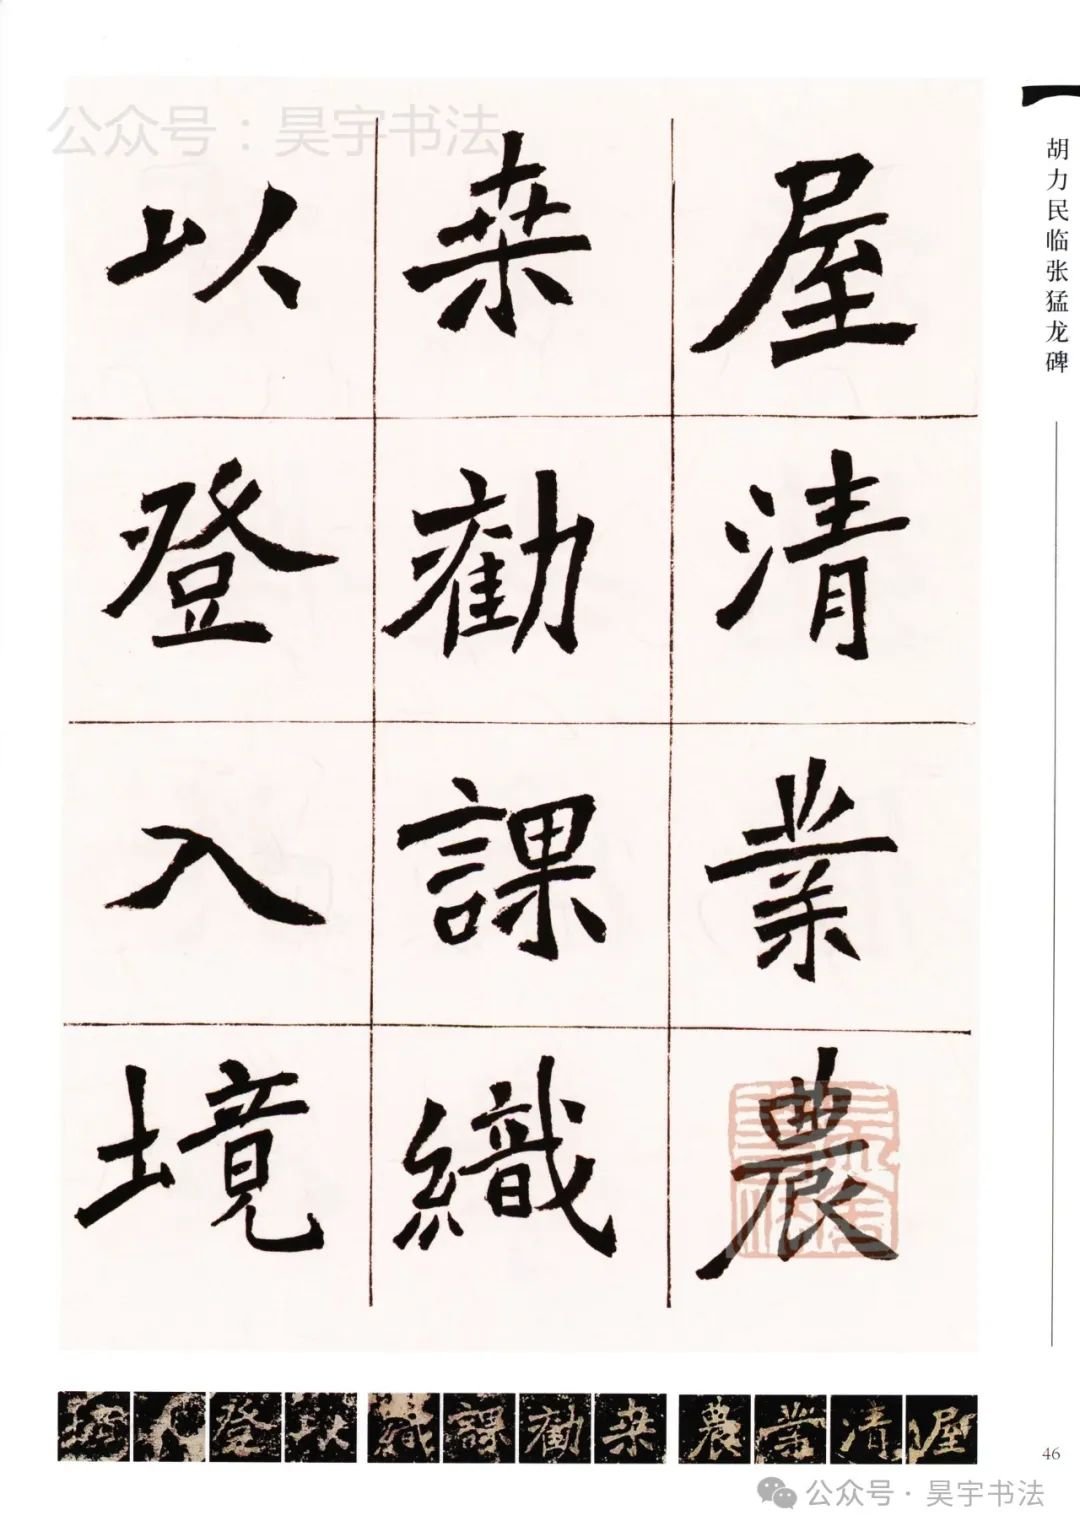 公众号：昊宇书法
胡力民临张猛龙碑
屋清業農
桒勸課織
以登入境
境入登以織課勸桒農業清屋
46
公众号·昊宇书法